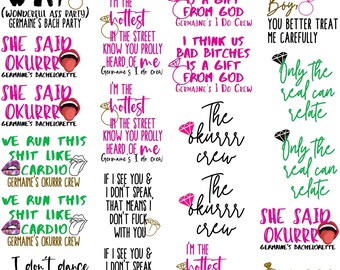 (WONDERFUL ASS PARTY)
GERMAINE'S BACH PARTY
SHE SAID
OKURRR
GERMAINE'S BACHELORETTE
SHE SAID
OKURRR
GERMAINE'S BACHELORETTE
WE RUN THIS
SHIT LIKE
CARDIO
GERMAINE'S OKURRR CREW
WE RUN THIS
SHIT LIKE
CARDIO
GERMAINE'S OKURRR CREW
I don't dance
I'M THE
hottest
IN THE STREET
KNOW YOU PROLLY
HEARD OF me
Germaine's I do Crew
I'M THE
hottest
IN THE STREET
KNOW YOU PROLLY
HEARD OF me
Germaine's I do crew
IF I SEE YOU &
I DON'T SPEAK
THAT MEANS I
DON'T FUCK
WITH YOU
IF I SEE YOU &
I DON'T SPEAK
THAT MEANS I
DON'T FUCK
WITH YOU
I'M THE
hottest
IS A GIFT
FROM GOD
GERMAINE'S I DO CREW
I THINK US
BAD BITCHES
IS A GIFT
FROM GOD
GERMAINE'S I DO CREW
The
okurrr
crew
The
okurrr
crew
The
okurrr
crew
Boy,
YOU BETTER TREAT
ME CAREFULLY
Only the
real can
relate
Only the
real can
relate
SHE SAID
OKURRR
GERMAINE'S BACHELORETTE